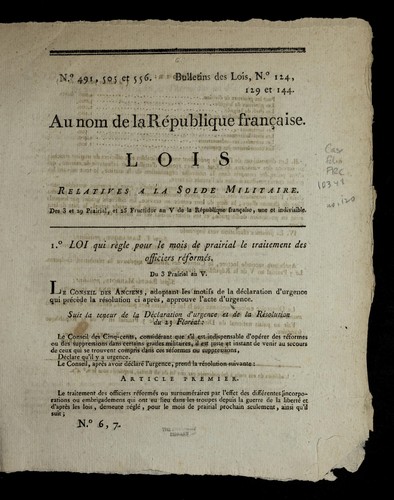 N.º 491, 505 et 556. Bulletins des Lois, N.º 124,
129 et 144.
Au nom de la République française.
LOIS
RELATIVES A LA SOLDE MILITAIRE.
Des 3 et 29 Prairial, et 23 Fructidor an V de la République française, une et indivisible.
1.º LOI qui règle pour le mois de prairial le traitement des
officiers réformés.
Du 3 Prairial an V.
LE CONSEIL DES ANCIENS, adoptant les motifs de la déclaration d'urgence
qui précède la résolution ci après, approuve l'acte d'urgence.
Suit la teneur de la Déclaration d'urgence et de la Résolution
du 23 Floréal:
Le Conseil des Cinq-cents, considérant que s'il est indispensable d'opérer des réformes
ou des suppressions dans certains grades militaires, il est juste et instant de venir au secours
de ceux qui se trouvent compris dans ces réformes ou suppressions,
Déclare qu'il y a urgence.
Le Conseil, après avoir déclaré l'urgence, prend la résolution suivante:
ARTICLE PREMIER.
Le traitement des officiers réformés ou surnuméraires par l'effet des différentes incorpo-
rations ou embrigademens qui ont eu lieu dans les troupes depuis la guerre de la liberté et
d'après les lois, demeure réglé, pour le mois de prairial prochain seulement, ainsi qu'il
suit;
N.º 6, 7.
Case
folio
FRC
10343
no. 120